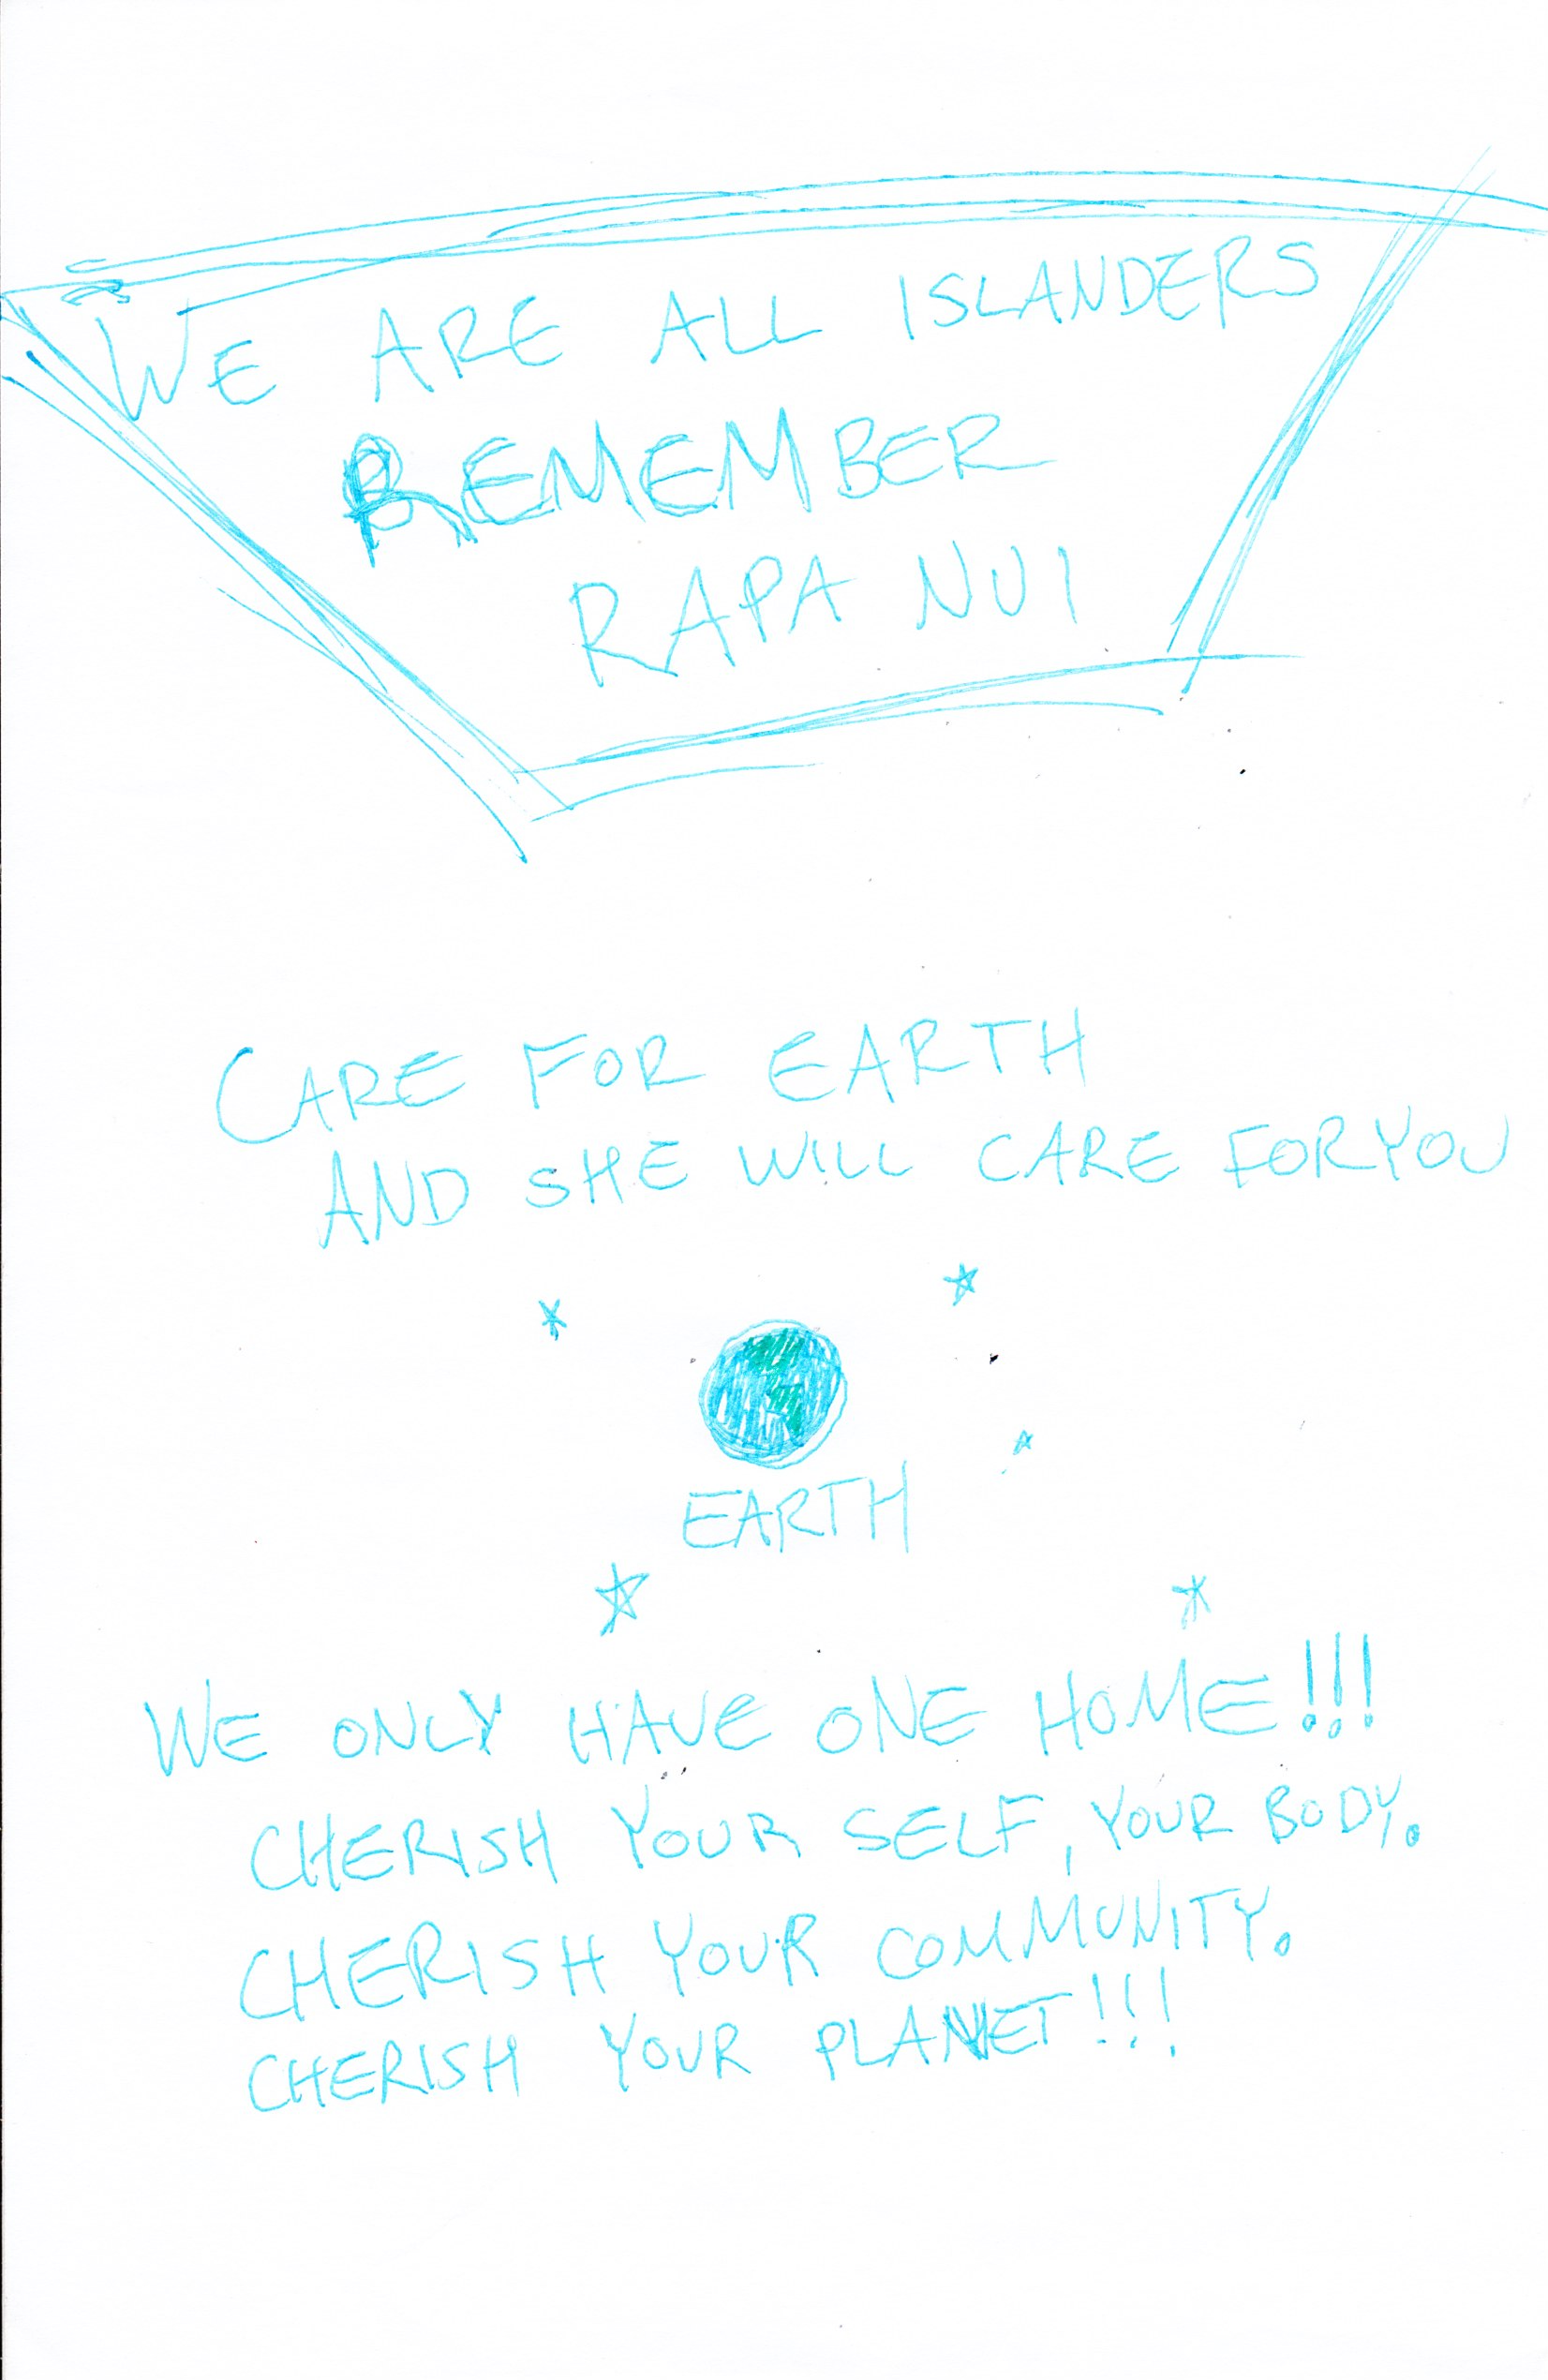 WE ARE ALL ISLANDERS
REMEMBER
RAPA NUI
CARE FOR EARTH
AND SHE WILL CARE FOR YOU
EARTH
WE ONLY HAVE ONE HOME!!!
CHERISH YOUR SELF, YOUR BODY.
CHERISH YOUR COMMUNITY.
CHERISH YOUR PLANET!!!